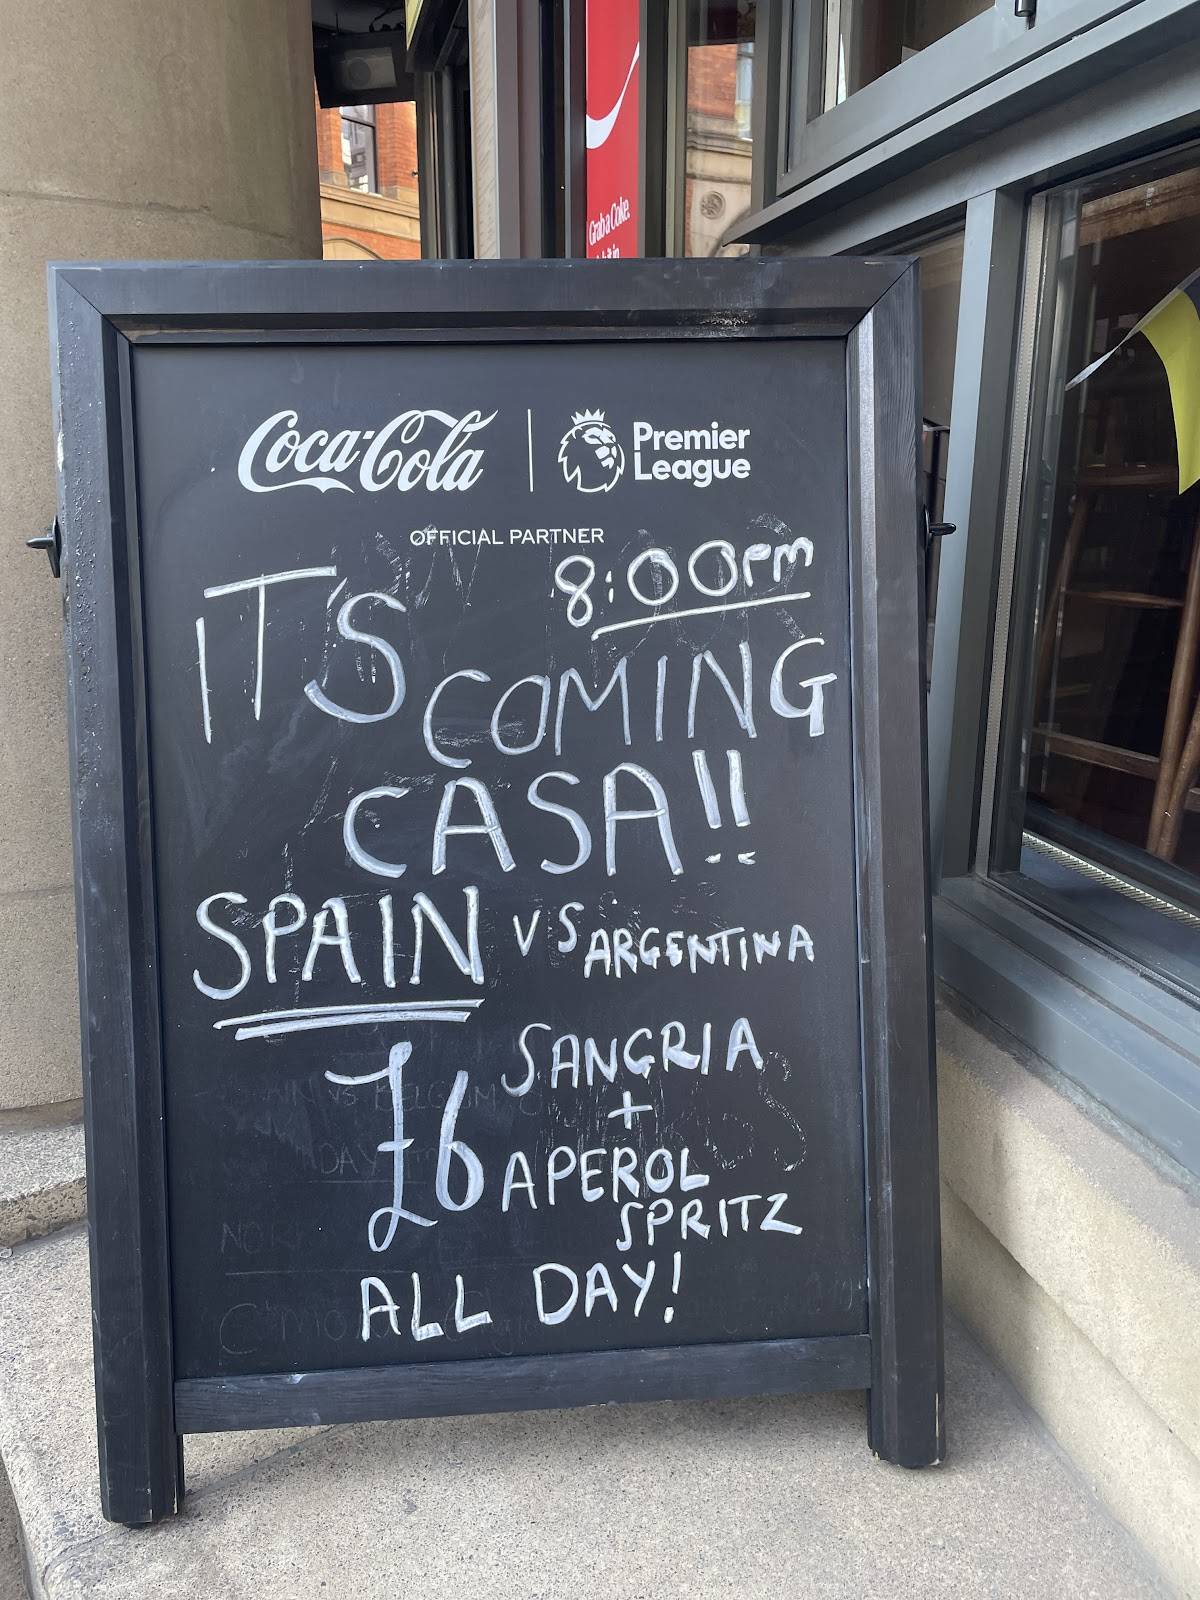 Grab a Coke.
Coca-Cola | Premier League
OFFICIAL PARTNER
8:00pm
ITS COMING
CASA!!
SPAIN VS ARGENTINA
£6 SANGRIA
+
APEROL
SPRITZ
ALL DAY!